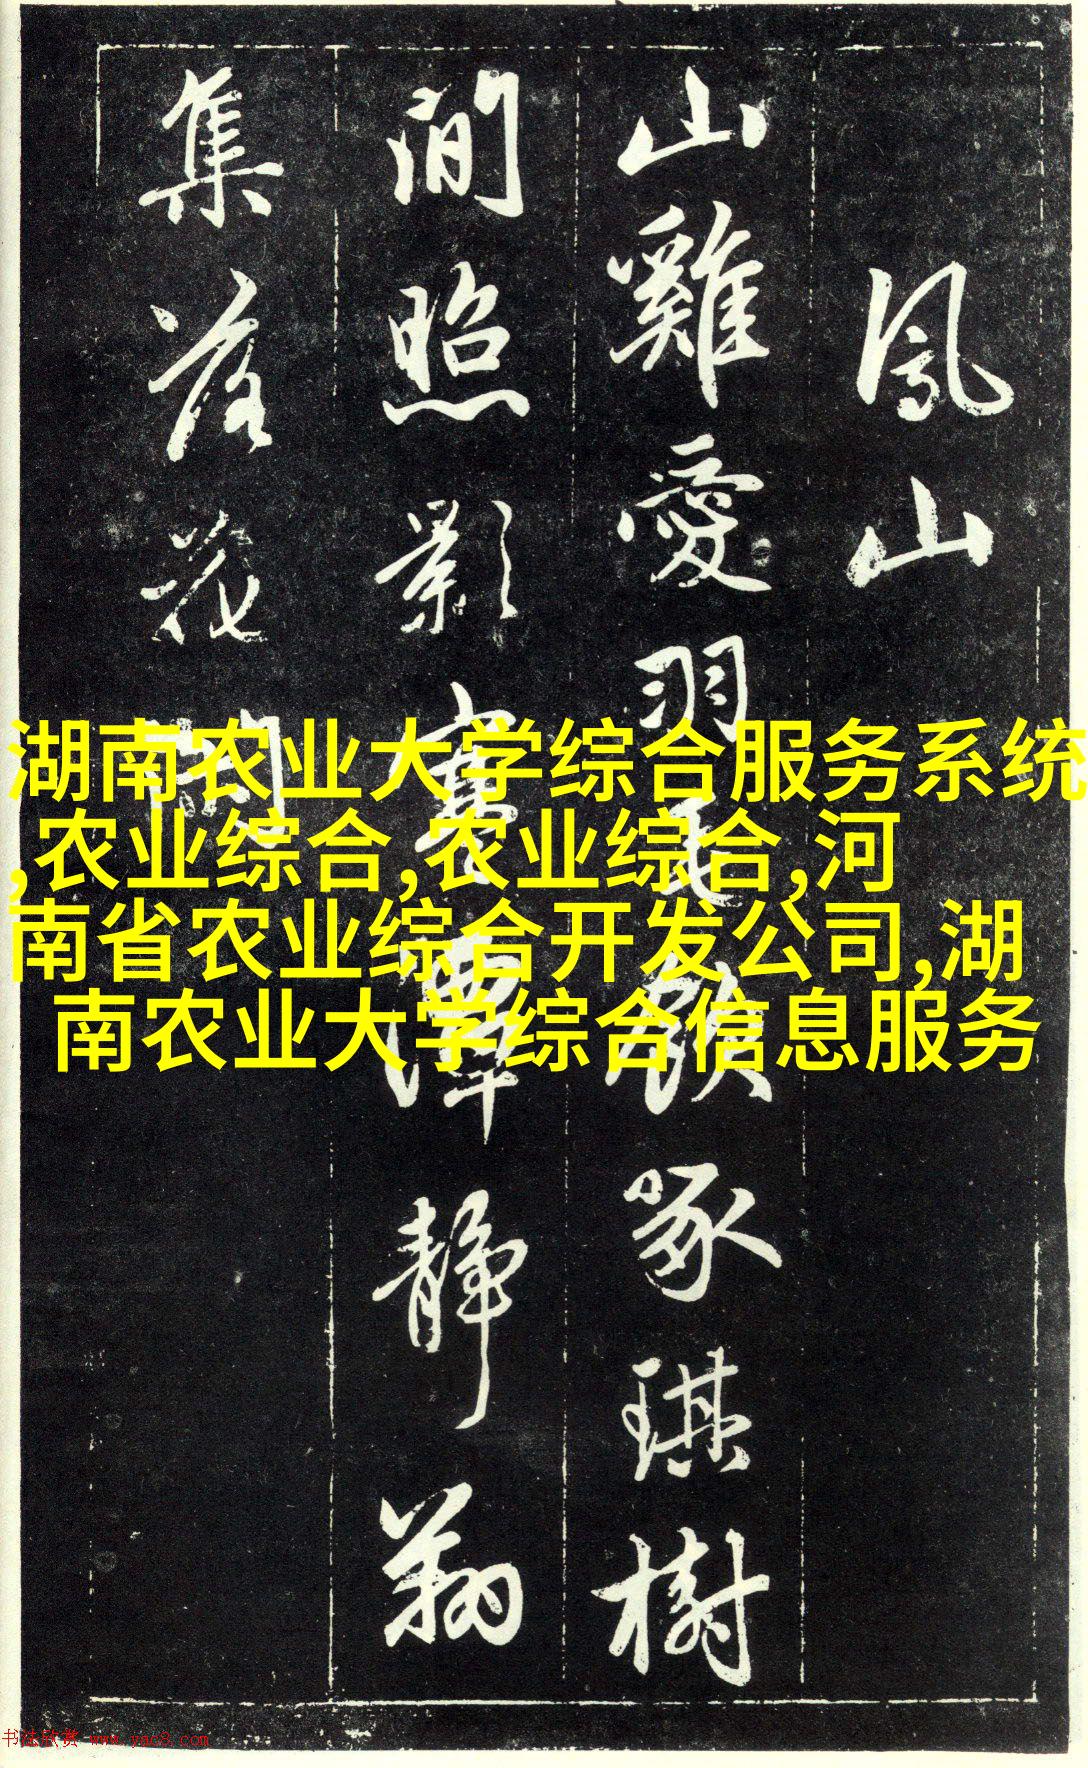 鳳山
山雞愛羽毛飲啄琪樹
間照影寒潭靜翔
集落花間
湖南农业大学综合服务系统
,农业综合,农业综合,河
南省农业综合开发公司,湖
南农业大学综合信息服务
书法欣赏 www.yac8.com